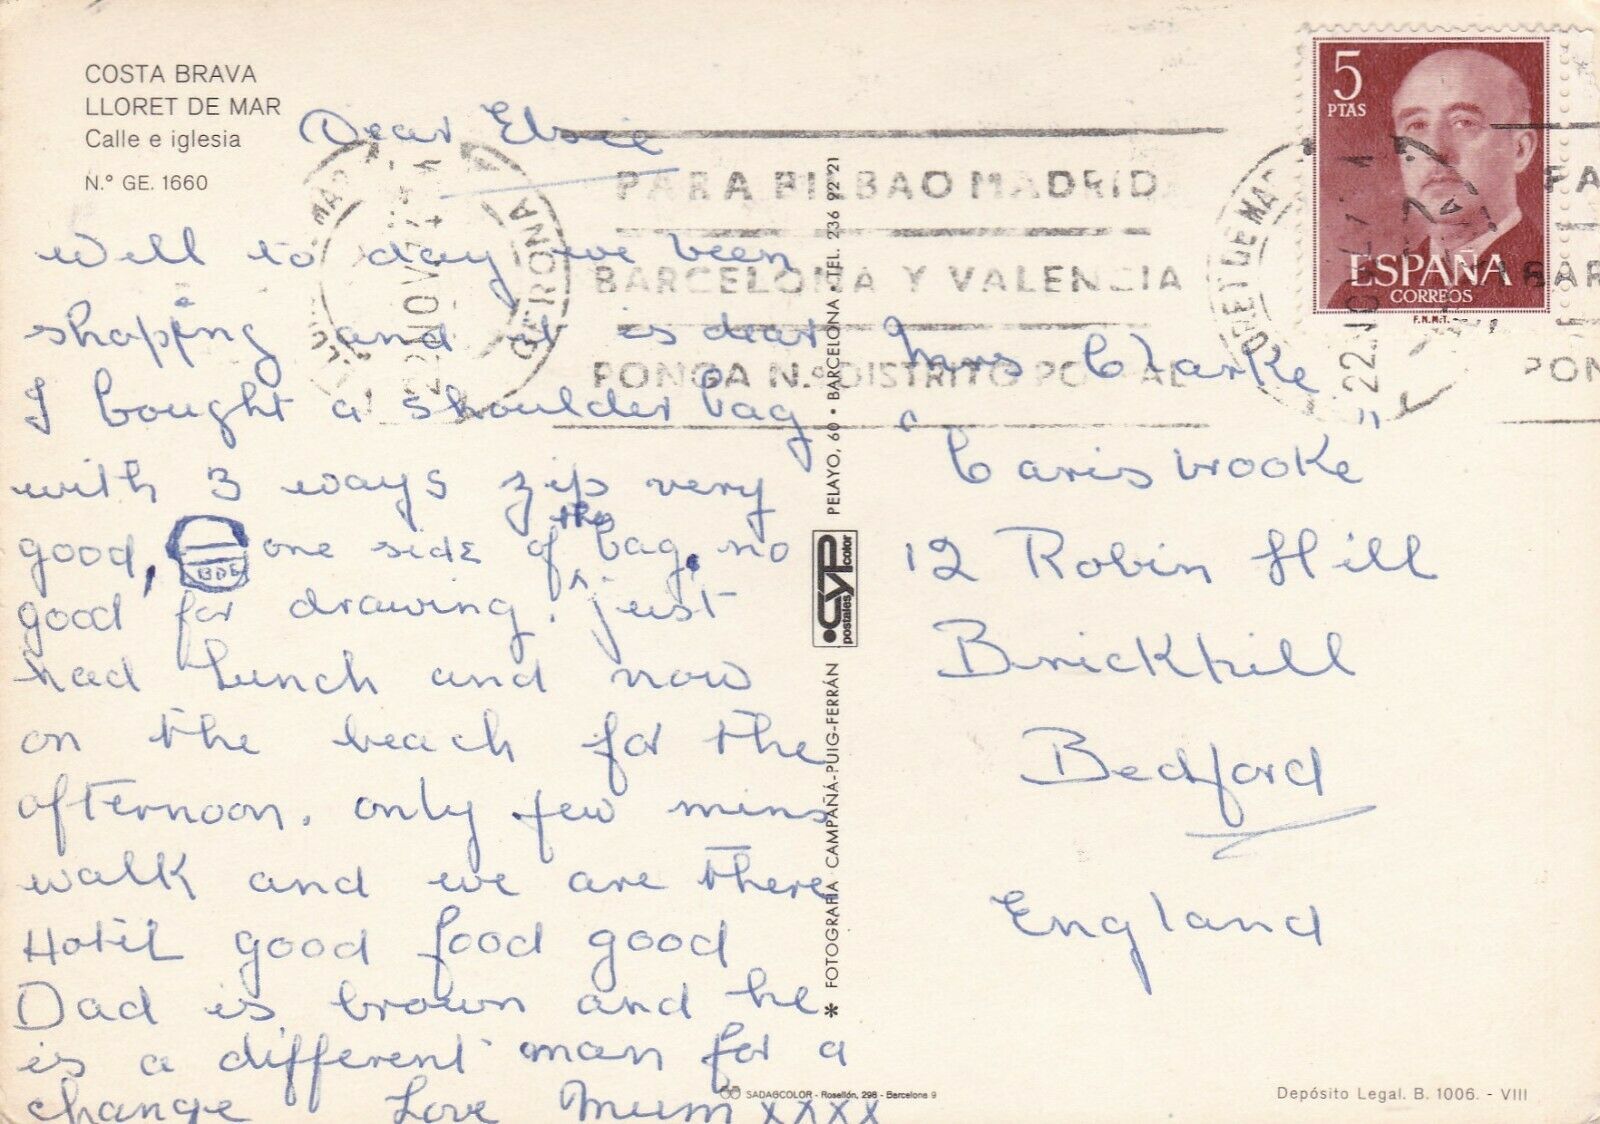 COSTA BRAVA
LLORET DE MAR
Calle e iglesia
N.º GE. 1660
Dear Elsie
Well to day we been
shopping and it is dear
I bought a shoulder bag
with 3 ways zip very
good, one side of the bag, no
good for drawing. just
had lunch and now
on the beach for the
afternoon. only few mins
walk and we are there
Hotil good food good
Dad is brown and he
is a different man for a
change Love Mum xxxx
Mrs Clarke
"Carisbrooke"
12 Robin Hill
Brickhill
Bedford
England
5
PTAS
ESPAÑA
CORREOS
F.N.M.T.
PARA BILBAO MADRID
BARCELONA Y VALENCIA
PONGA N.º DISTRITO POSTAL
GERONA
22 NOV
* FOTOGRAFIA CAMPAÑÁ-PUIG-FERRÁN
CYP color
postales
PELAYO, 60 • BARCELONA • TEL. 236 92 21
SADAGCOLOR - Rosellón, 298 - Barcelona 9
Depósito Legal. B. 1006. - VIII